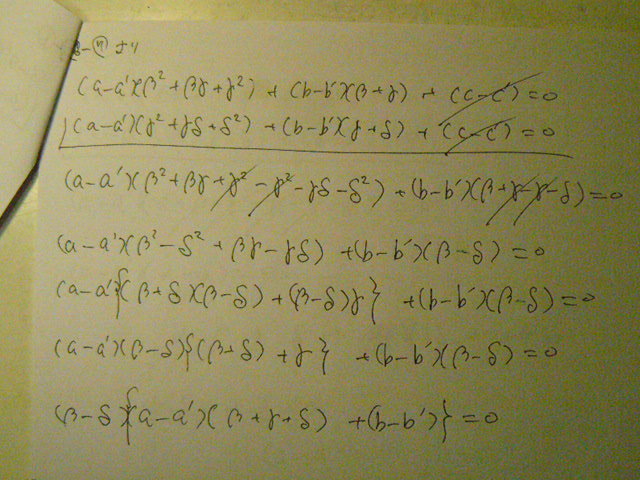 ③-④より
(a-a')(β²+βγ+γ²) + (b-b')(β+γ) + (c-c')=0
(a-a')(γ²+γδ+δ²) + (b-b')(γ+δ) + (c-c')=0
(a-a')(β²+βγ+γ²-γ²-γδ-δ²) +(b-b')(β+γ-γ-δ)=0
(a-a')(β²-δ²+βγ-γδ) +(b-b')(β-δ)=0
(a-a'){(β+δ)(β-δ)+(β-δ)γ} +(b-b')(β-δ)=0
(a-a')(β-δ){(β+δ)+γ} +(b-b')(β-δ)=0
(β-δ){(a-a')(β+γ+δ) +(b-b')}=0